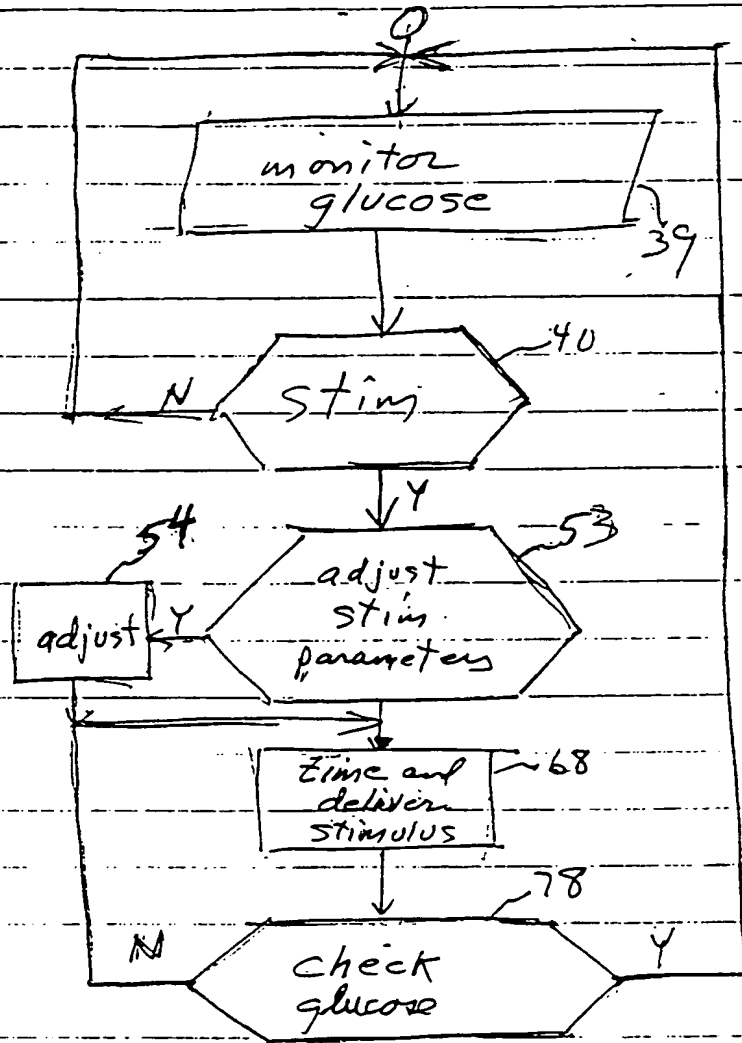 monitor
glucose
39
40
stim
N
Y
54
53
adjust
stim
parameters
Y
adjust
68
time and
deliver
stimulus
78
N
Y
check
glucose